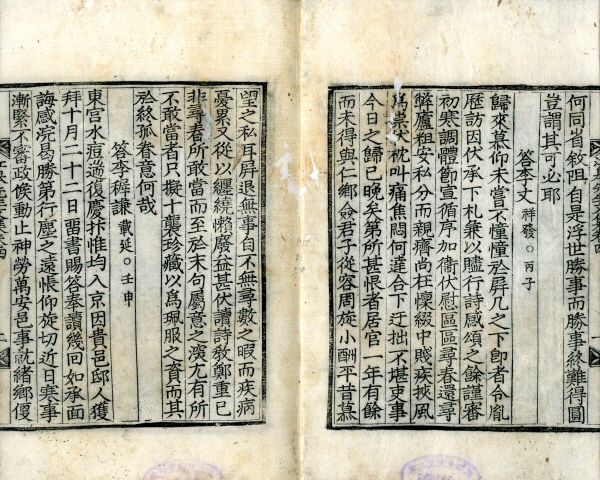 何同省敘阻自是浮世勝事而勝事終難得圓
豈謂其可必耶
答李丈 祥發○丙子
歸來慕仰未嘗不憧憧於屛几之下卽者令胤
歷訪因伏承下札兼以贐行詩感頌之餘謹審
初寒調體節宣循序加衞伏慰區區尋春還尋
弊廬粗安私分而親癠尚在懷綴中賤疾挾風
爲祟伏枕叫痛焦悶何達合下迂拙不堪吏事
今日之歸已晩矣第所甚恨者居官一年有餘
而未得與仁鄕僉君子從容周旋小酬平昔慕
望之私耳屛退無事自不無尋數之暇而疾病
憂累又從以纏繞懶廢益甚伏讀詩敎鄭重已
非尋春所敢當而至於末句屬意之深尤有所
不敢當者只擬十襲珍藏以爲珮服之資而其
於終孤眷意何哉
答李穉謙 載延○壬申
東宮水痘遄復慶抃惟均入京因貴邑邸人獲
拜十月二十二日留書賜答奉讀幾回如承面
誨感浣曷勝第行塵之遠悵仰旋切近日寒事
漸緊不審政候動止神勞萬安邑事就緖鄕優